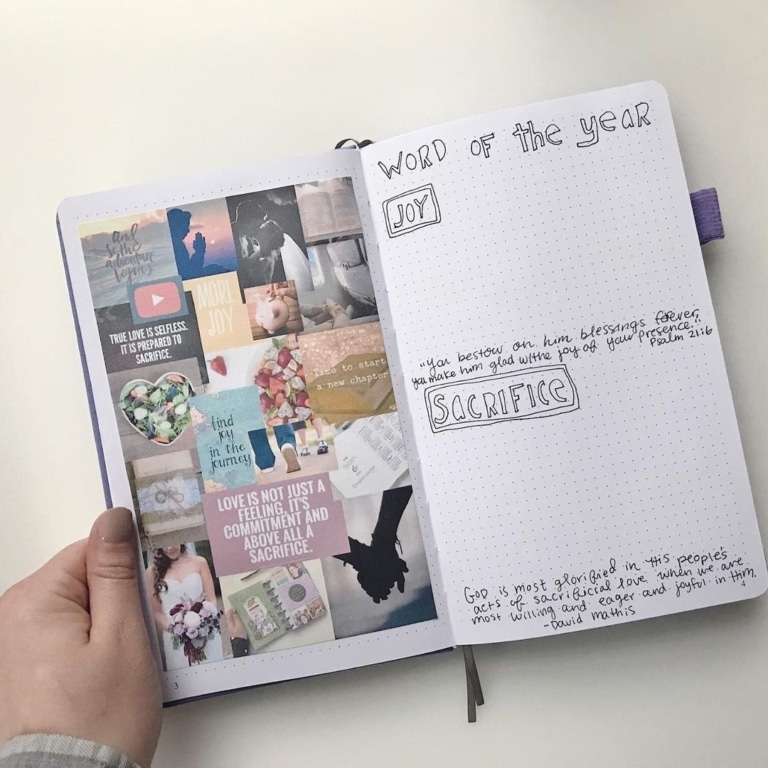 and
so the
adventure
begins
MORE
JOY
TRUE LOVE IS SELFLESS.
IT IS PREPARED TO
SACRIFICE.
Time to start
a new chapter
find
joy
in the
journey
LOVE IS NOT JUST A
FEELING, IT'S
COMMITMENT AND
ABOVE ALL A
SACRIFICE.
3
WORD OF the yeaR
JOY
"you bestow on him blessings forever,
you make him glad w/the joy of your presence."
Psalm 21:6
SACRIFICE
GOD is most glorified in His people's
acts of sacrificial love when we are
most willing and eager and joyful in Him.
-David Mathis